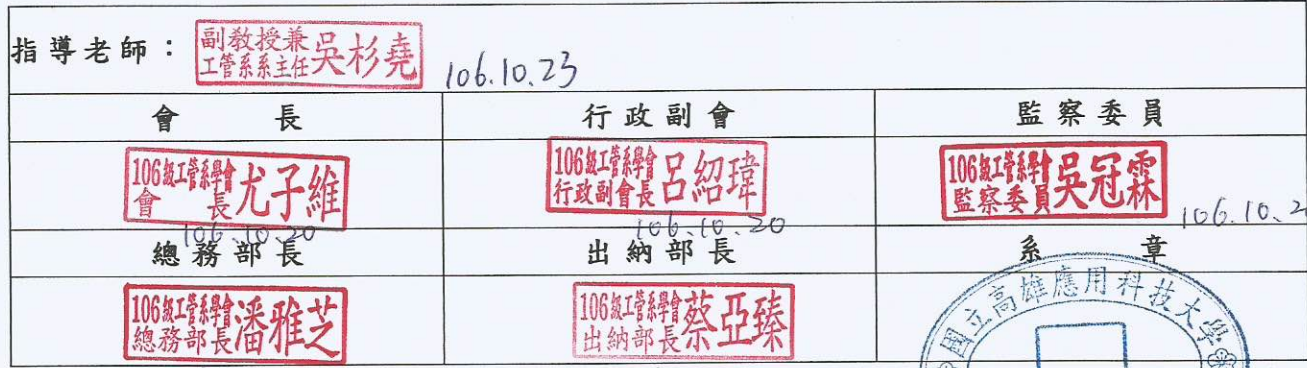 指導老師：
副教授兼
工管系系主任 吳杉堯
106.10.23
會長 行政副會 監察委員
106級工管系學會
會長 尤子維
106.10.20
106級工管系學會
行政副會長 呂紹瑋
106.10.20
106級工管系學會
監察委員 吳冠霖
106.10.2
總務部長 出納部長 系章
106級工管系學會
總務部長 潘雅芝
106級工管系學會
出納部長 蔡亞臻
國立高雄應用科技大學